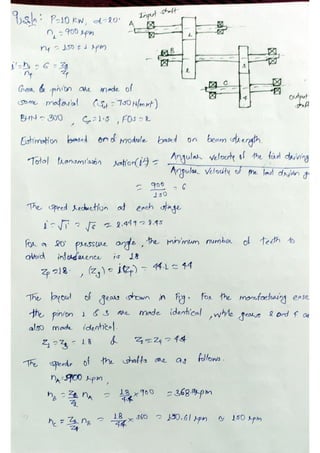 Input shaft
P=10 KW, α=20°
n₁ = 900 rpm
n₄ = 150 ± 2 rpm
A
1
B
2
3
C
4
output shaft
= 6 =
Gear & pinion are made of
same material (Sut = 750 N/mm²)
BHN = 300, Cs = 1.5, FOS = 2
Estimation based on of module based on beam strength.
Total transmission ratio (i') = Angular velocity of the first driving
Angular velocity of the last driven g
= 900/150 = 6
The speed reduction at each stage
i = √i' = √6 = 2.449 = 2.45
For a 20° pressure angle, the minimum number of teeth to
avoid interference is 18
Zp = 18, (Zg) = i(Zp) = 44.1 = 44
The layout of gears shown in fig. For the manufacturing ease
the pinion 1 & 3 are made identical, while gears 2 and 4 are
also made identical
Z₁ = Z₃ = 18 & Z₂ = Z₄ = 44
The speeds of the shafts are as follows.
nA = 900 rpm,
nB = Z₁/Z₂ nA = 18/44 × 900 = 368 rpm
nC = Z₃/Z₄ nB = 18/44 × 368 = 150.61 rpm ≈ 150 rpm